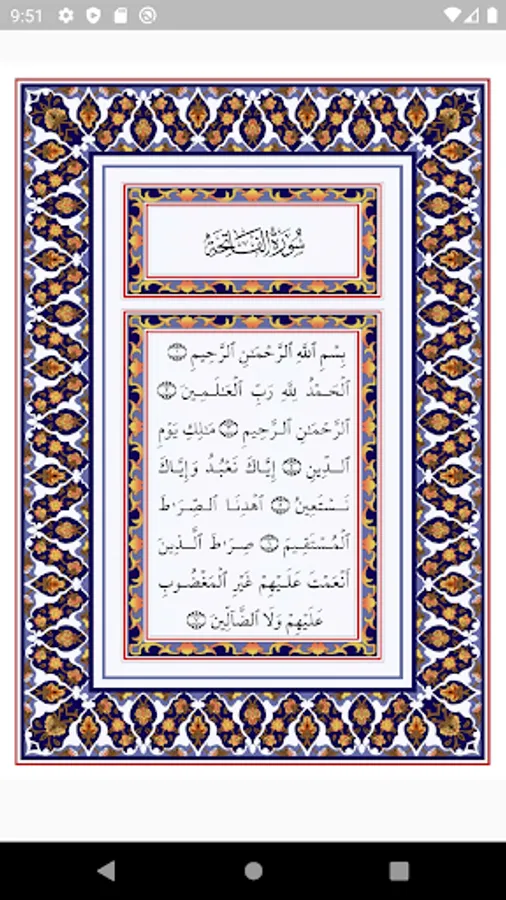 9:51
سُورَةُ الفَاتِحَةِ
بِسْمِ ٱللَّهِ ٱلرَّحْمَٰنِ ٱلرَّحِيمِ ۝١
ٱلْحَمْدُ لِلَّهِ رَبِّ ٱلْعَٰلَمِينَ ۝٢
ٱلرَّحْمَٰنِ ٱلرَّحِيمِ ۝٣ مَٰلِكِ يَوْمِ
ٱلدِّينِ ۝٤ إِيَّاكَ نَعْبُدُ وَإِيَّاكَ
نَسْتَعِينُ ۝٥ ٱهْدِنَا ٱلصِّرَٰطَ
ٱلْمُسْتَقِيمَ ۝٦ صِرَٰطَ ٱلَّذِينَ
أَنْعَمْتَ عَلَيْهِمْ غَيْرِ ٱلْمَغْضُوبِ
عَلَيْهِمْ وَلَا ٱلضَّآلِّينَ ۝٧